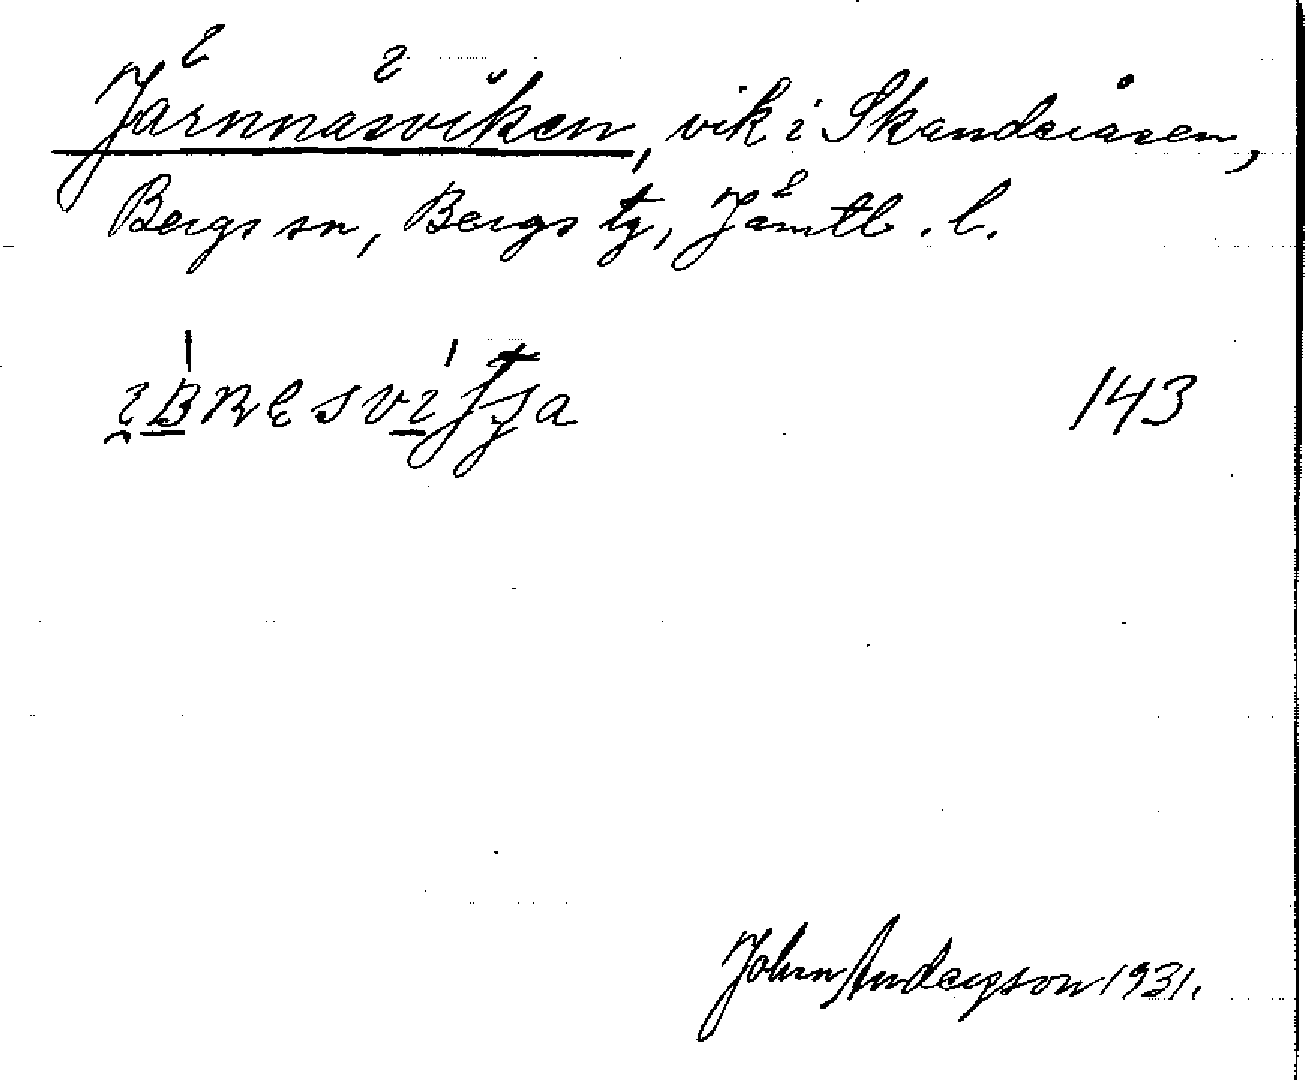 Järnnäsviken, vik i Skanderåsen,
Bergs sn, Bergs tg, Jämtl. l.
143
John Andersson 1931.